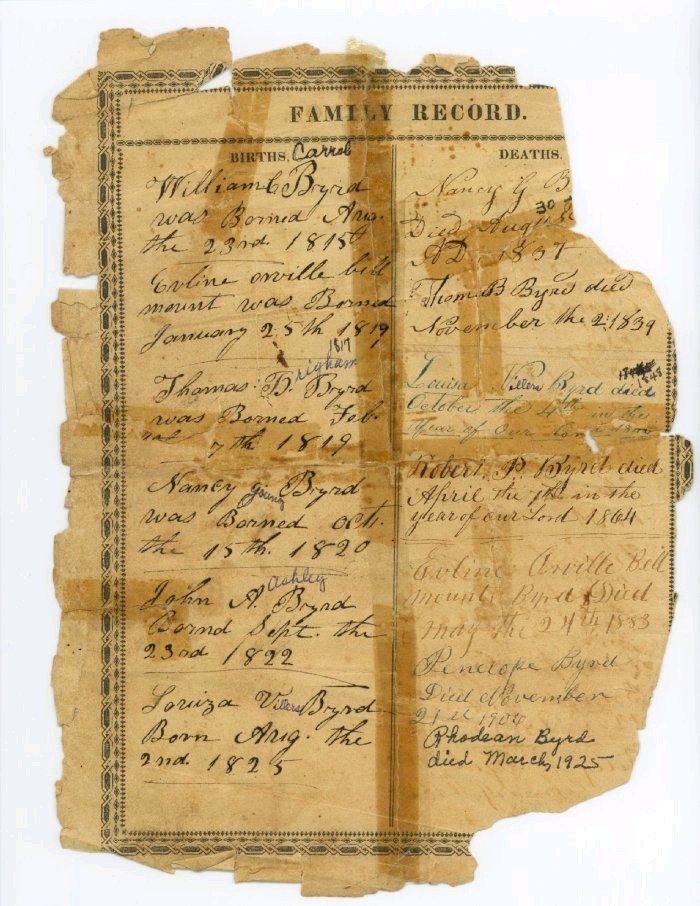 FAMILY RECORD.
BIRTHS. Carrol
William C Byrd
was Borned Aug.
the 23rd. 1815
Evline orville bell
mount was Borned
January 25th 1817
1817
Thomas B. righam Byrd
was Borned Feb.
7th 1819
Nancy g young Byrd
was Borned oct.
the 15th. 1820
Ashley
John A. Byrd
Bornd Sept. the
23rd 1822
Louiza V illers Byrd
Born Aug. the
2nd. 1825
DEATHS.
Nancy G B
30
Died August
AD. 1837
Thom B Byrd died
November the 2: 1839
1848
Louisa Villers Byrd died
October the 4th in the
Year of Our Lord
Robert P. Byrd died
April the 7th in the
year of our Lord 1864
Evline Orville Bell
mount Byrd Died
may the 24th 1883
Penelope Byrd
Died November
21st 1904
Rhodean Byrd
died March, 1925